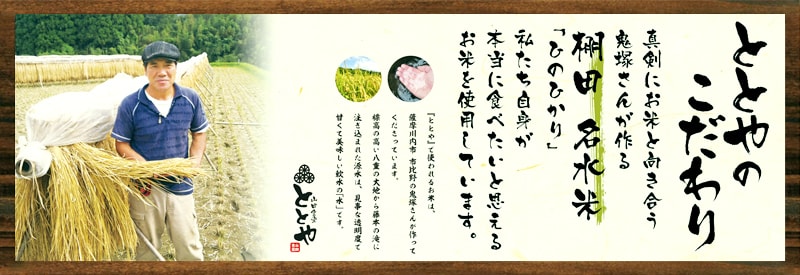 ととやの
こだわり
真剣にお米と向き合う
鬼塚さんが作る
棚田 名水米
「ひのひかり」
私たち自身が
本当に食べたいと思える
お米を使用しています。
『ととや』で使われるお米は、
薩摩川内市 市比野の鬼塚さんが作って
くださっています。
標高の高い八重の大地から藤本の滝に
注ぎ込まれた源水は、見事な透明度で
甘くて美味しい軟水の「水」です。
ととや